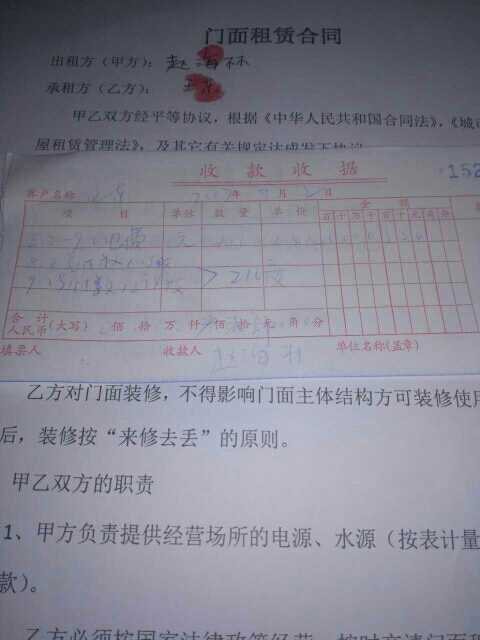 门面租赁合同
出租方（甲方）：赵海林
承租方（乙方）：王东
甲乙双方经平等协议，根据《中华人民共和国合同法》，《城
屋租赁管理法》，及其它有关规定达成发下协议
收款收据
152
客户名称 王东 2017年9月2日
项目 单位 数量 单价 金额
百十万千百十元角分
8.2-9.2电费 元
216度
合计
人民币(大写) 佰 拾 万 仟 佰 拾 元 角 分
填票人 收款人 赵海林 单位名称(盖章)
乙方对门面装修，不得影响门面主体结构方可装修使用
后，装修按“来修去丢”的原则。
甲乙双方的职责
1、甲方负责提供经营场所的电源、水源（按表计量
款）。
乙方必须按国家法律政策经营，按时交清门面